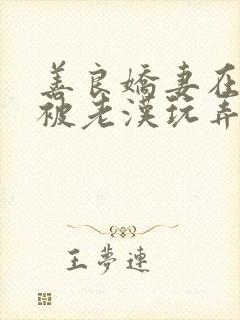 善良嬌妻在
被老漢玩弄
王夢連